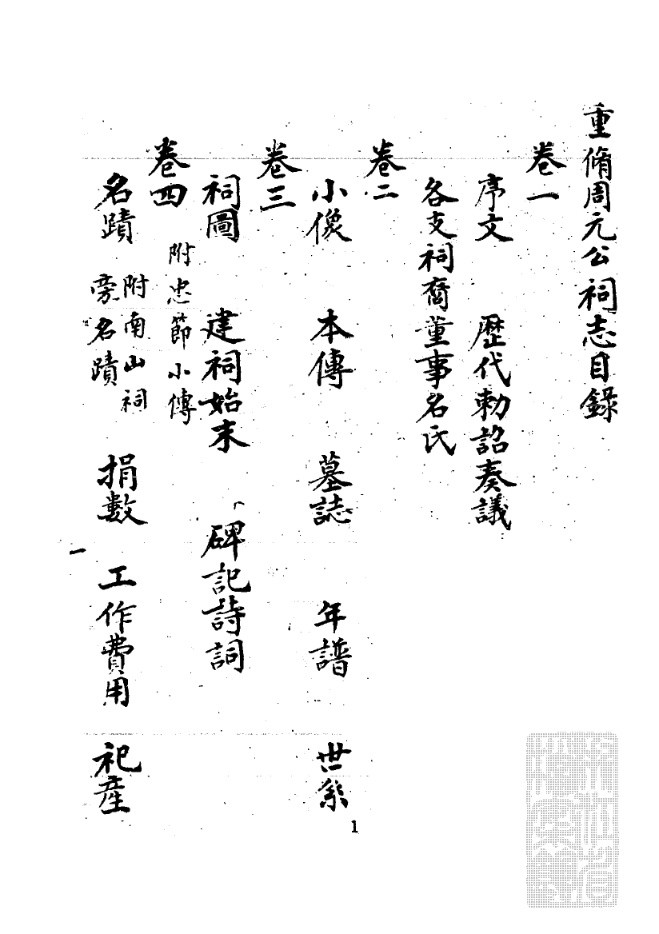 重脩周元公祠志目錄
卷一
序文 歷代勅詔奏議
各支祠裔董事名氏
卷二
小像 本傳 墓誌 年譜 世系
卷三
祠圖 建祠始末 碑記詩詞
附忠節小傳
卷四
名蹟 附南山祠旁名蹟 捐數 工作費用 祀產
1